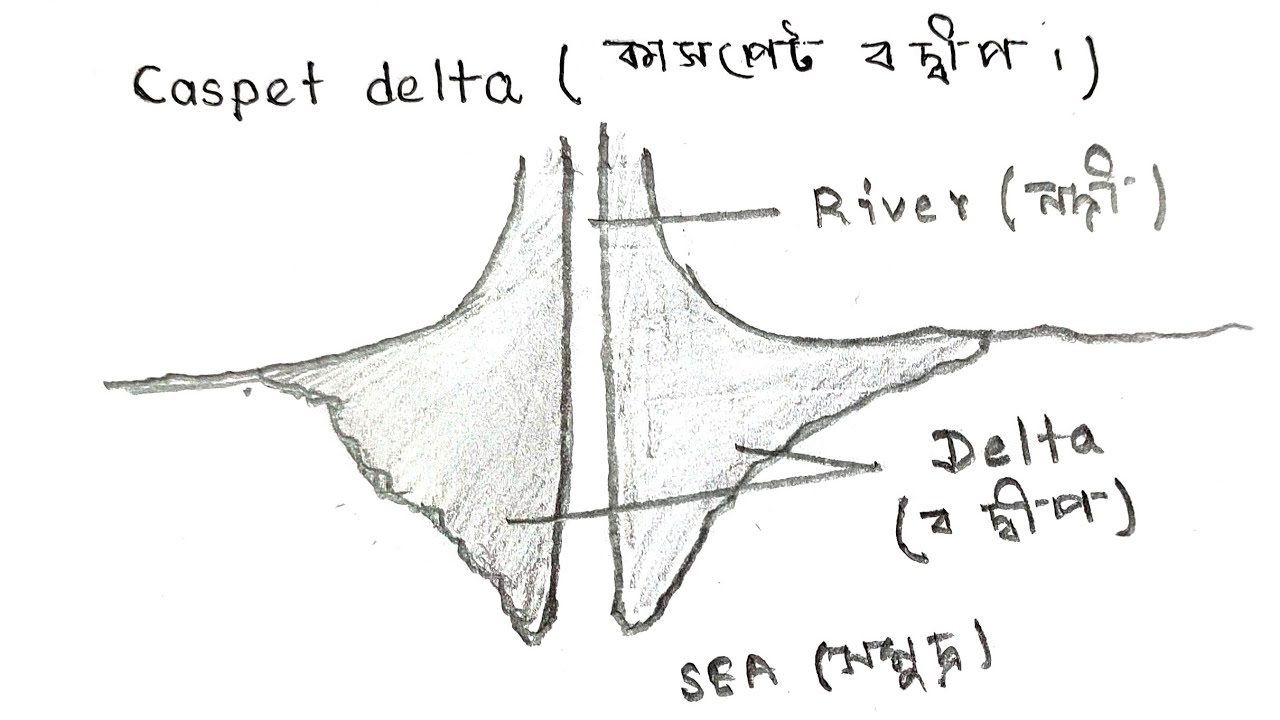 Caspet delta ( কাসপেট ব দ্বীপ । )
River ( নদী )
Delta
( ব দ্বীপ )
SEA ( সমুদ্র )